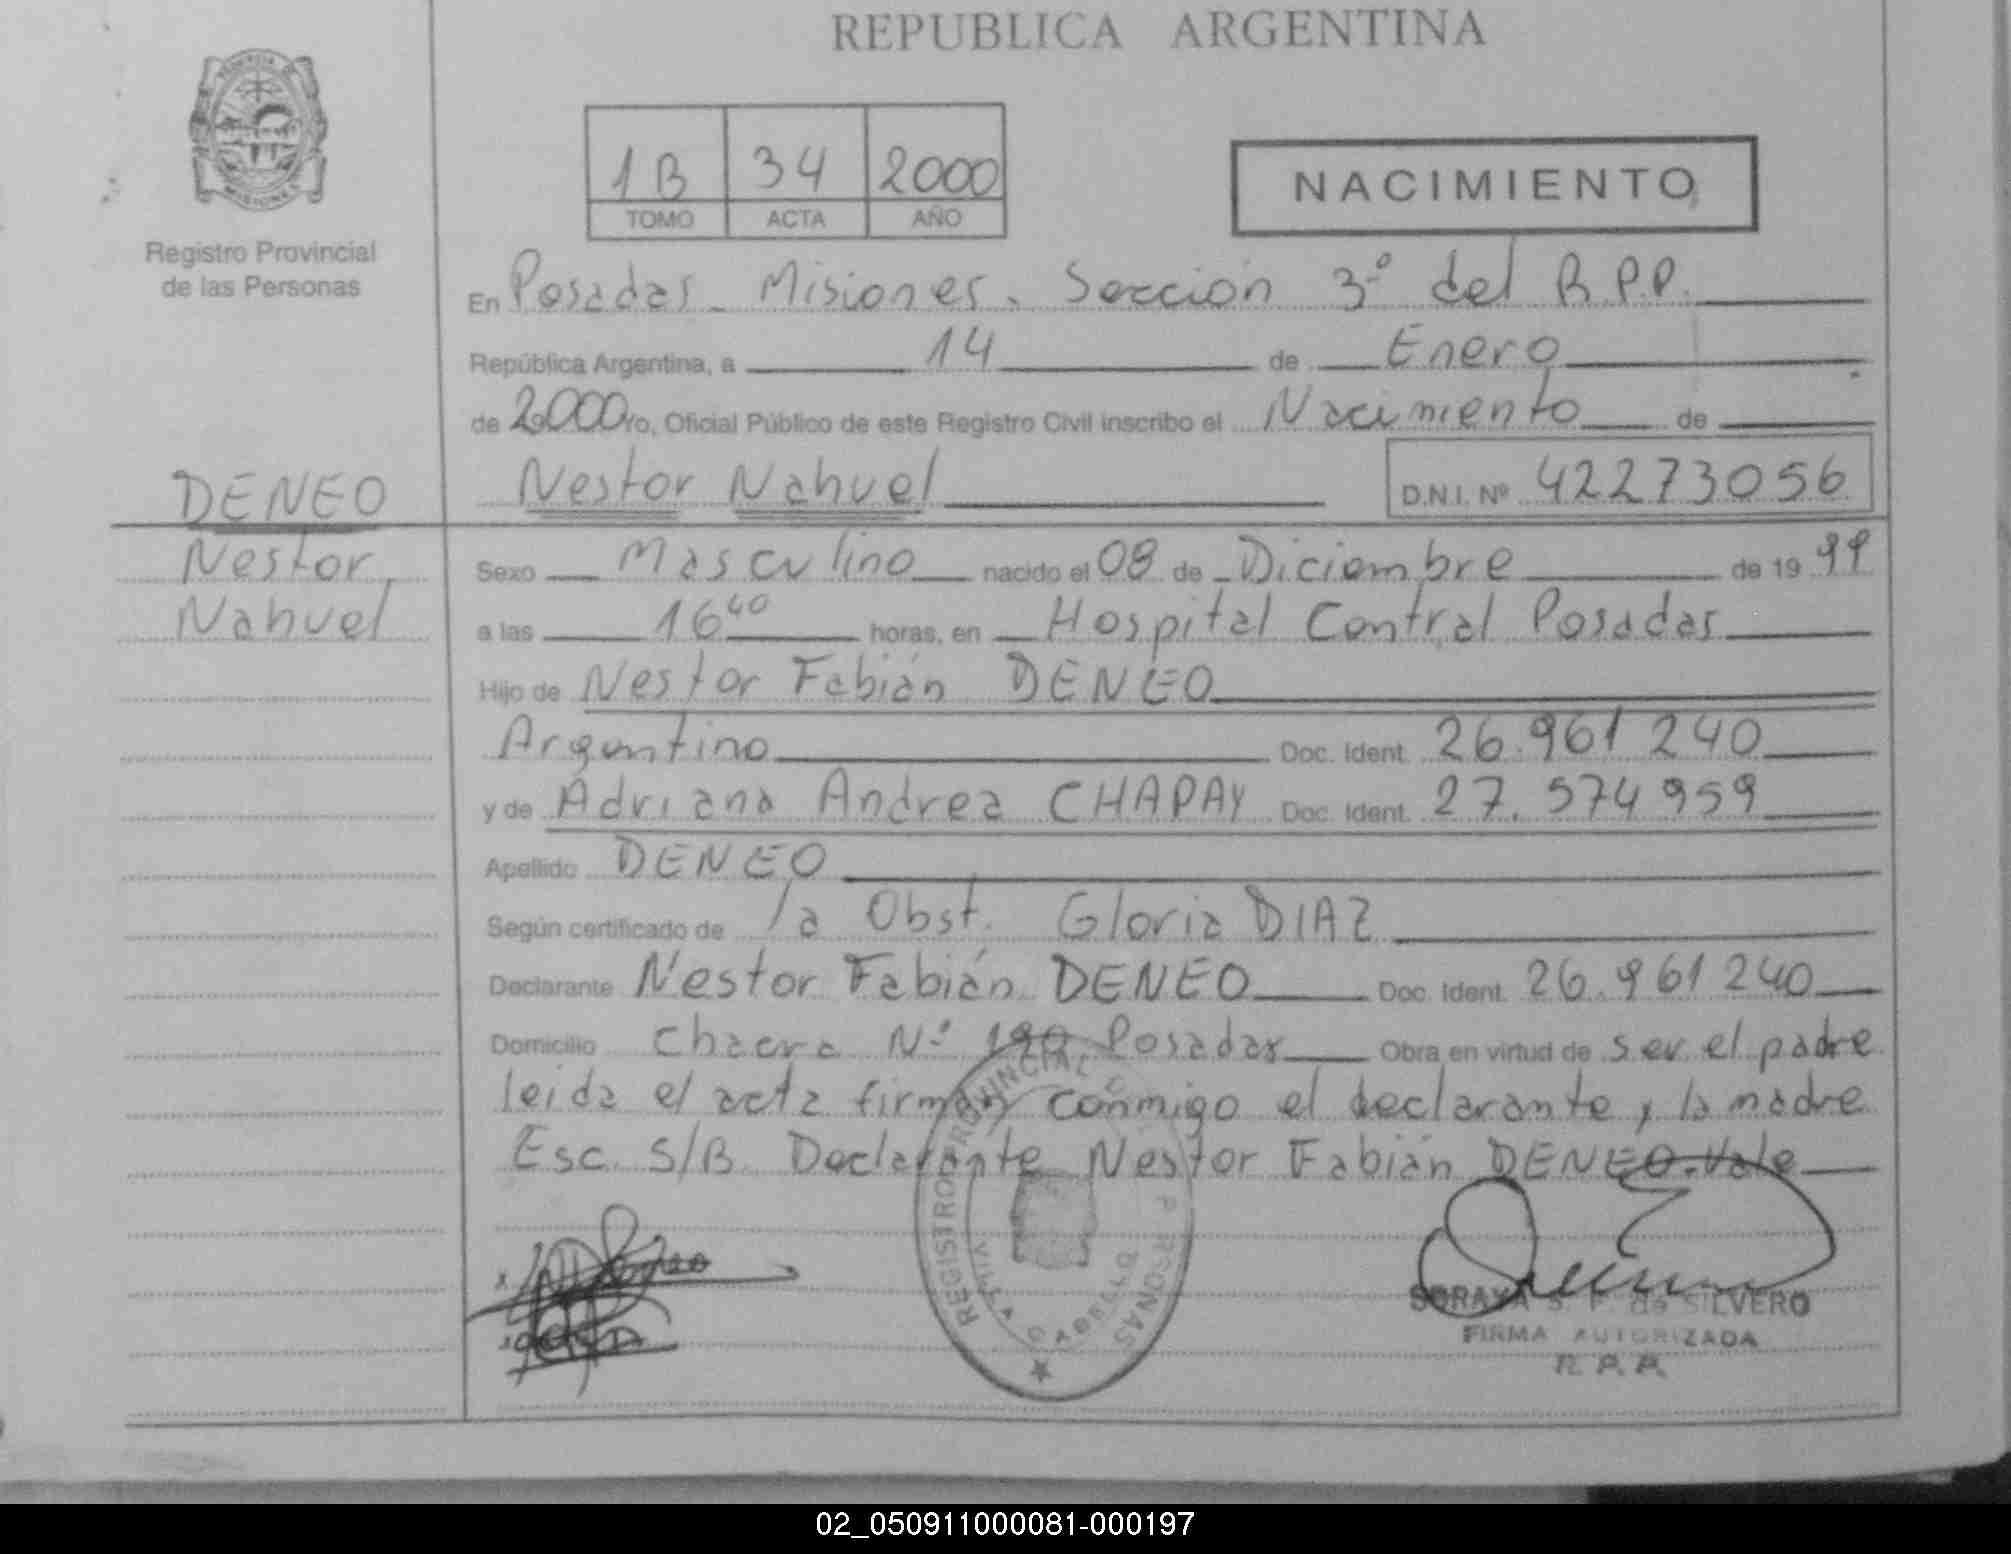 REPUBLICA ARGENTINA
1B 34 2000
TOMO ACTA AÑO
NACIMIENTO
Registro Provincial
de las Personas
En Posadas - Misiones. Sección 3º del R.P.P.
República Argentina, a 14 de Enero
de 2000 yo, Oficial Público de este Registro Civil inscribo el Nacimiento de
DENEO
Nestor
Nahuel
Nestor Nahuel D.N.I. Nº 42273056
Sexo Masculino nacido el 08 de Diciembre de 1999
a las 16 40 horas, en Hospital Central Posadas
Hijo de Nestor Fabián DENEO
Argentino Doc. Ident. 26.961240
y de Adriana Andrea CHAPAY Doc. Ident. 27.574959
Apellido DENEO
Según certificado de la Obst. Gloria DIAZ
Declarante Nestor Fabián DENEO Doc. Ident. 26.961240
Domicilio Chacra Nº 190 Posadas Obra en virtud de ser el padre
leida el acta firman conmigo el declarante y la madre
Esc. S/B. Declarante Nestor Fabián DENEO. Vale
REGISTRO PROVINCIAL DE PERSONAS
VILLA CABELLO
SORAYA S. F. de SILVERO
FIRMA AUTORIZADA
02_050911000081-000197